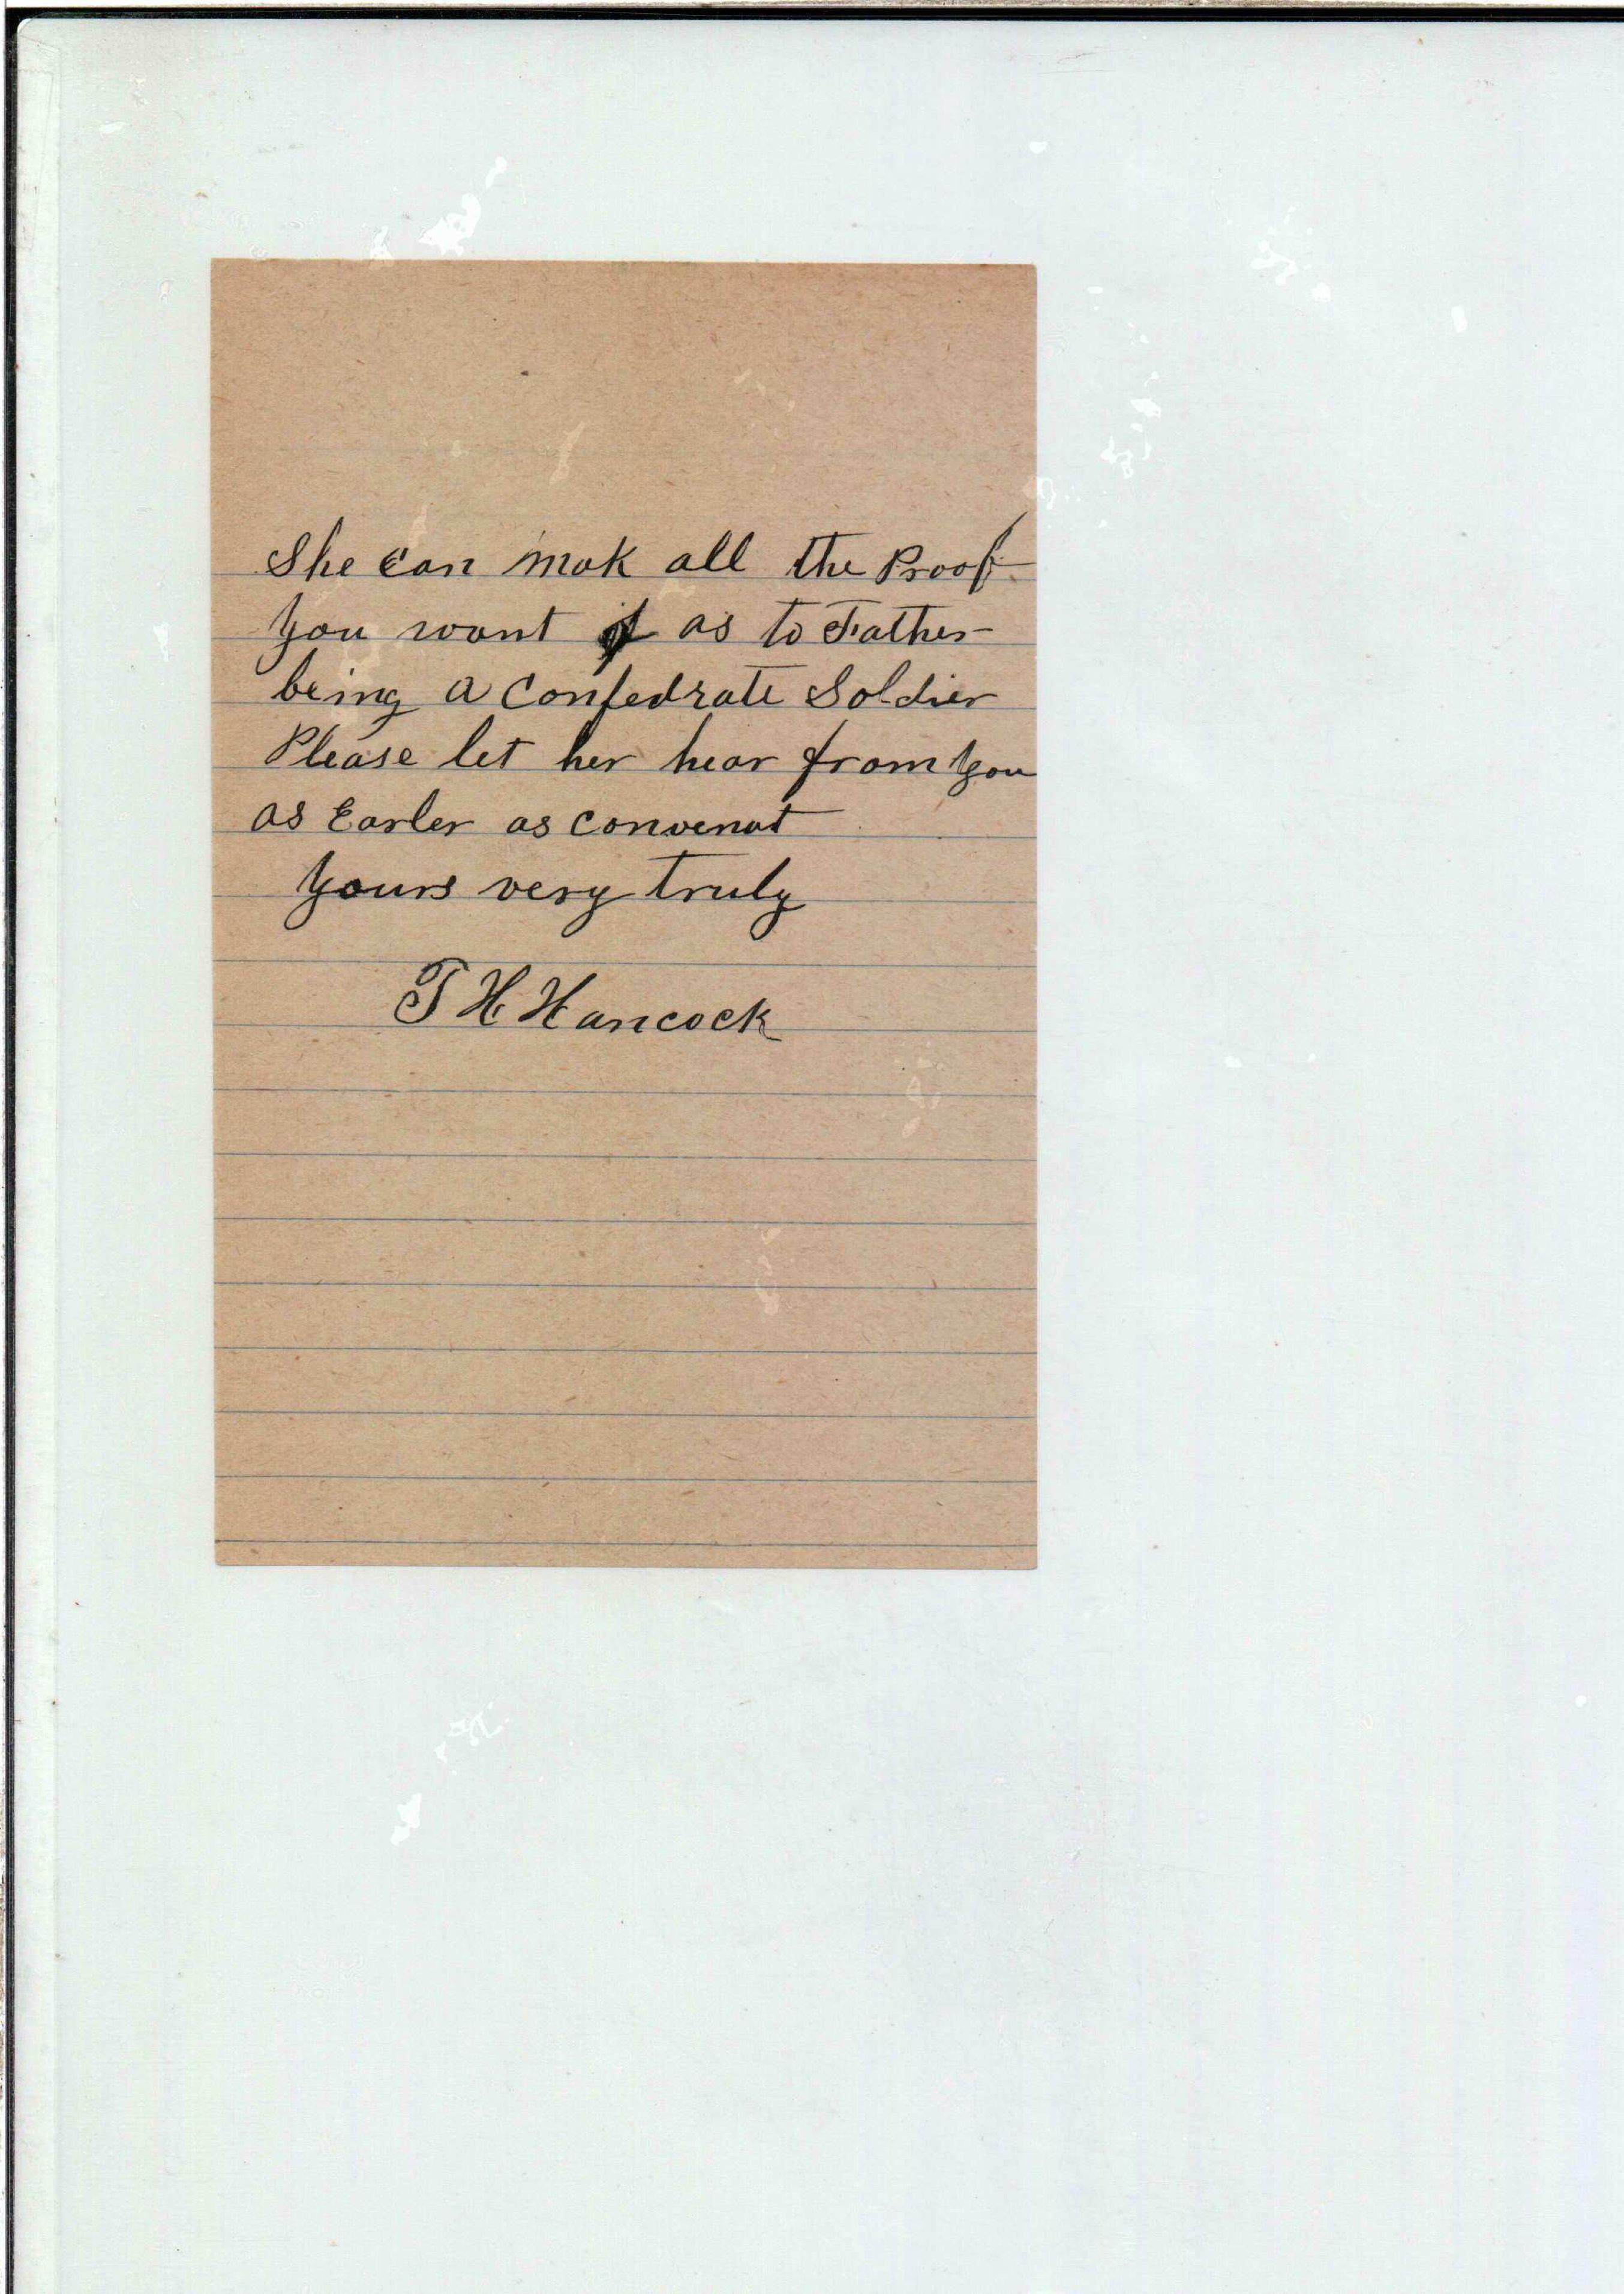 She can mak all the Proof
you want as to Father
being a Confedrate Soldier
Please let her hear from you
as Earler as convenat
yours very truly
T H Hancock